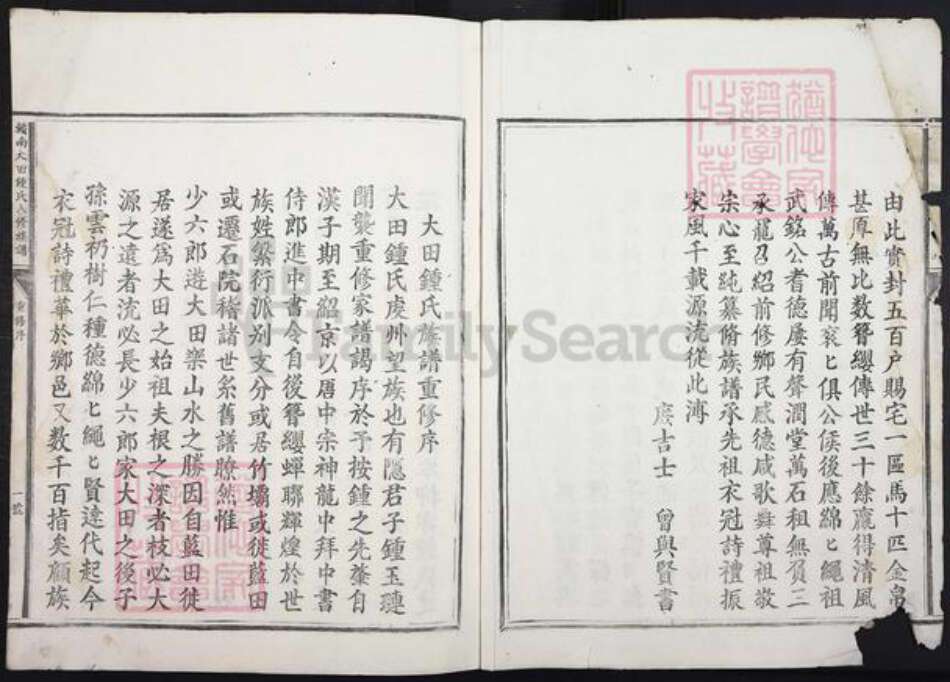 由此實封五百户賜宅一區馬十匹金帛
甚厚無比数簪纓傳世三十餘贏得清風
傳萬古前聞袞匕俱公侯後應綿匕繩祖
武銘公者德屡有聲潤堂萬石租無負三
承龍召紹前修鄉民感德咸歌舜尊祖敬
宗心至純纂脩族譜承先祖衣冠詩禮振
家風千載源流從此溥
庶吉士 曾與賢書
大田鍾氏族譜重修序
大田鍾氏虔州望族也有隱君子鍾玉璉
聞襲重修家譜謁序於予按鍾之先肇自
漢子期至紹京以唐中宗神龍中拜中書
侍郎進中書令自後簪纓蟬聯輝煌於世
族姓繁衍派别支分或居竹壩或徙藍田
或遷石院稽諸世系舊譜瞭然惟
少六郎遊大田樂山水之勝因自藍田徙
居遂爲大田之始祖夫根之深者枝必大
源之遠者流必長少六郎家大田之後子
孫雲礽樹仁種德綿匕繩匕賢達代起今
衣冠詩禮華於鄉邑又数千百指矣顧族
贛南大田鍾氏六修族譜
重修序
FamilySearch
譜學會
收藏